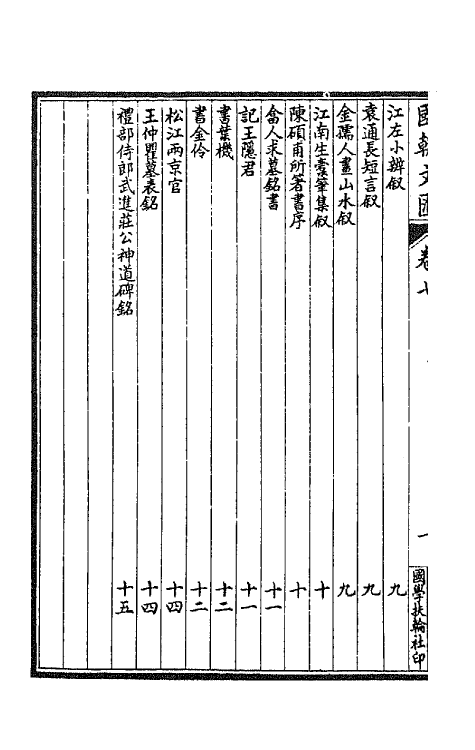 國朝文匯 卷七 一 國學扶輪社印
江左小辨叙 九
袁通長短言叙 九
金孺人畫山水叙 九
江南生橐筆集叙 十
陳碩甫所箸書序 十
畣人求墓銘書 十一
記王隱君 十一
書葉機 十二
書金伶 十二
松江兩京官 十四
王仲瞿墓表銘 十四
禮部侍郎武進莊公神道碑銘 十五